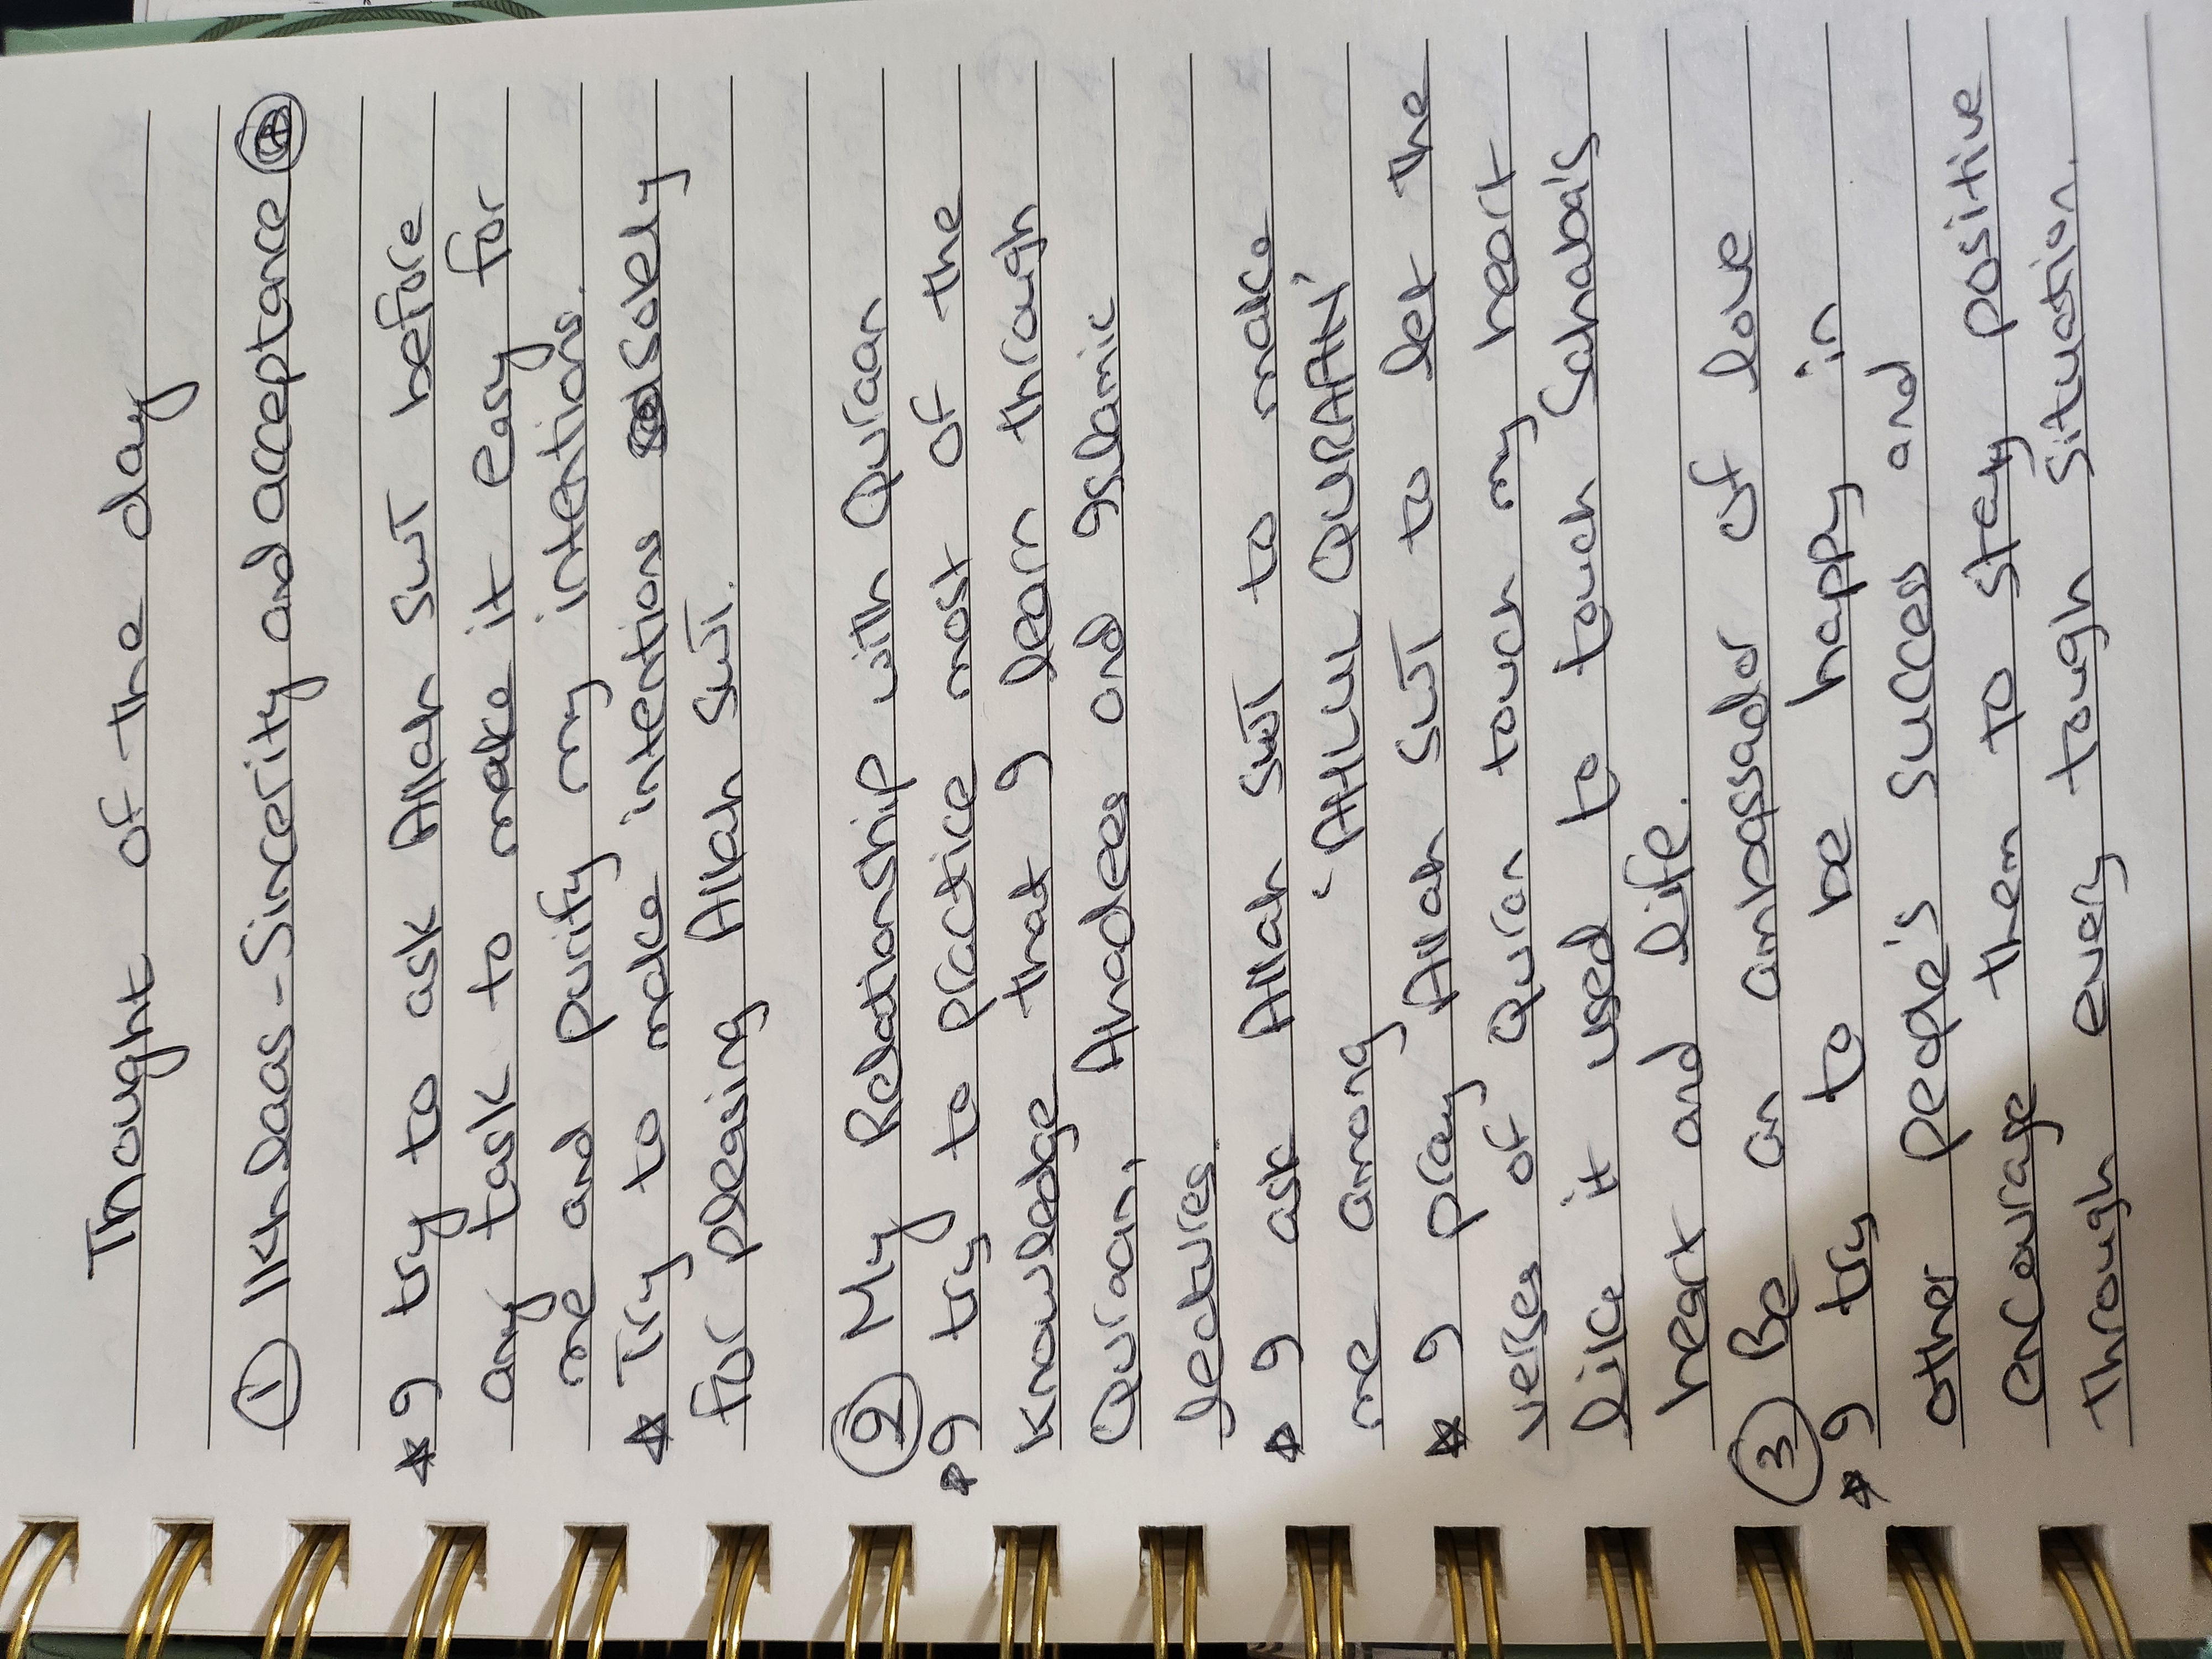 Thought of the day
① Ikhlaas - Sincerity and acceptance
* I try to ask Allah SWT before
any task to make it easy for
me and purify my intentions.
* Try to make intentions solely
for pleasing Allah SWT.
② My Relationship with Quraan
* I try to practice most of the
knowledge that I learn through
Quraan, Ahadees and Islamic
lectures.
* I ask Allah SWT to make
me among 'AHLUL QURAAN'
* I pray Allah SWT to let the
verses of Quran touch my heart
like it used to touch Sahaba's
heart and life.
③ Be an ambassador of love
* I try to be happy in
other people's success and
encourage them to stay positive
through every tough situation.